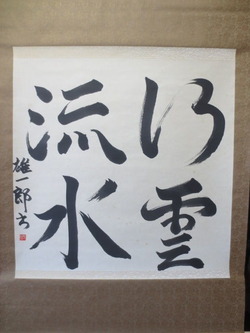 行雲
流水
雄一郎書